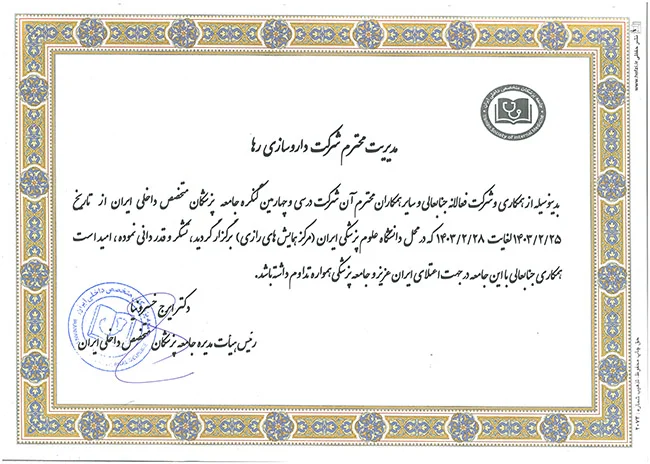 جامعه پزشکان متخصص داخلی ایران
Iranian Society of Internal Medicine
مدیریت محترم شرکت داروسازی رها
بدینوسیله از همکاری و شرکت فعالانه جنابعالی و سایر همکاران محترم آن شرکت در سی و چهارمین کنگره جامعه پزشکان متخصص داخلی ایران از تاریخ
۱۴۰۳/۲/۲۵ لغایت ۱۴۰۳/۲/۲۸ که در محل دانشگاه علوم پزشکی ایران (مرکز همایش های رازی) برگزار گردید، تشکر و قدردانی نموده، امید است
همکاری جنابعالی با این جامعه در جهت اعتلای ایران عزیز و جامعه پزشکی همواره تداوم داشته باشد.
دکتر ایرج خسرونیا
رئیس هیأت مدیره جامعه پزشکان متخصص داخلی ایران
حق چاپ محفوظ